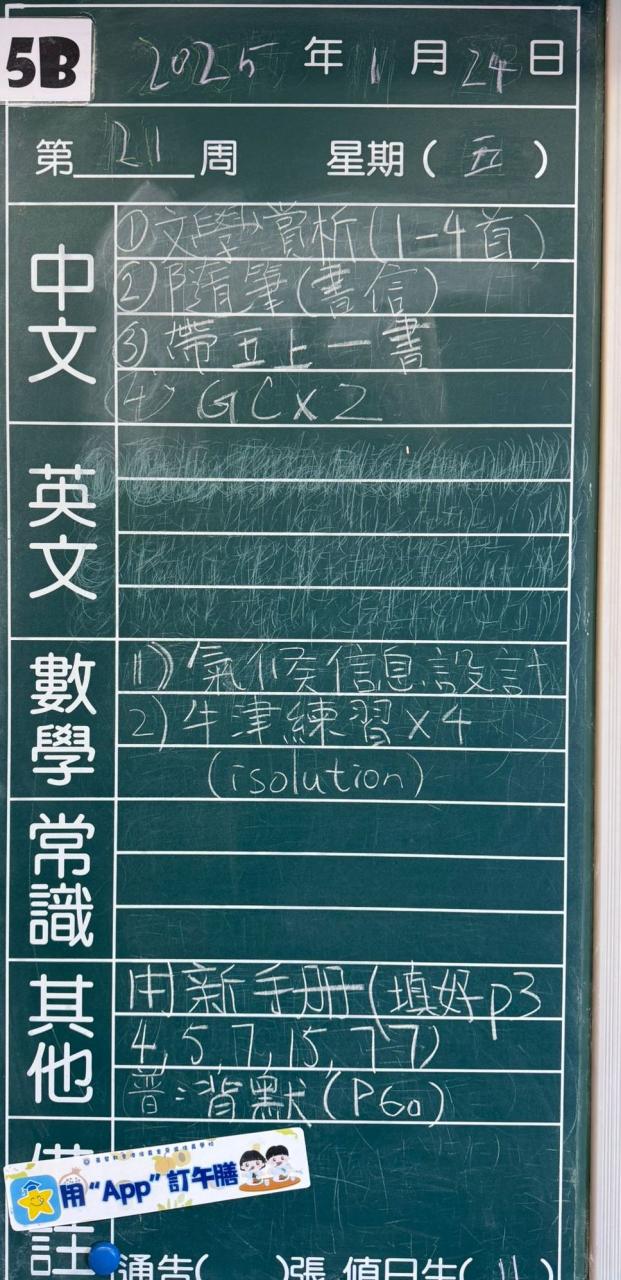 5B
2025 年 1 月 24 日
第 21 周 星期 ( 五 )
中文
①文學賞析(1-4首)
②隨筆(書信)
③帶五上一書
④ GC×2
英文
數學
1) 氣候信息設計
2) 牛津練習×4
(isolution)
常識
其他
用新手冊(填好p3
4, 5, 7, 15, 77)
普:背默(P60)
用“App”訂午膳
註
通告( )張 值日生( 11 )